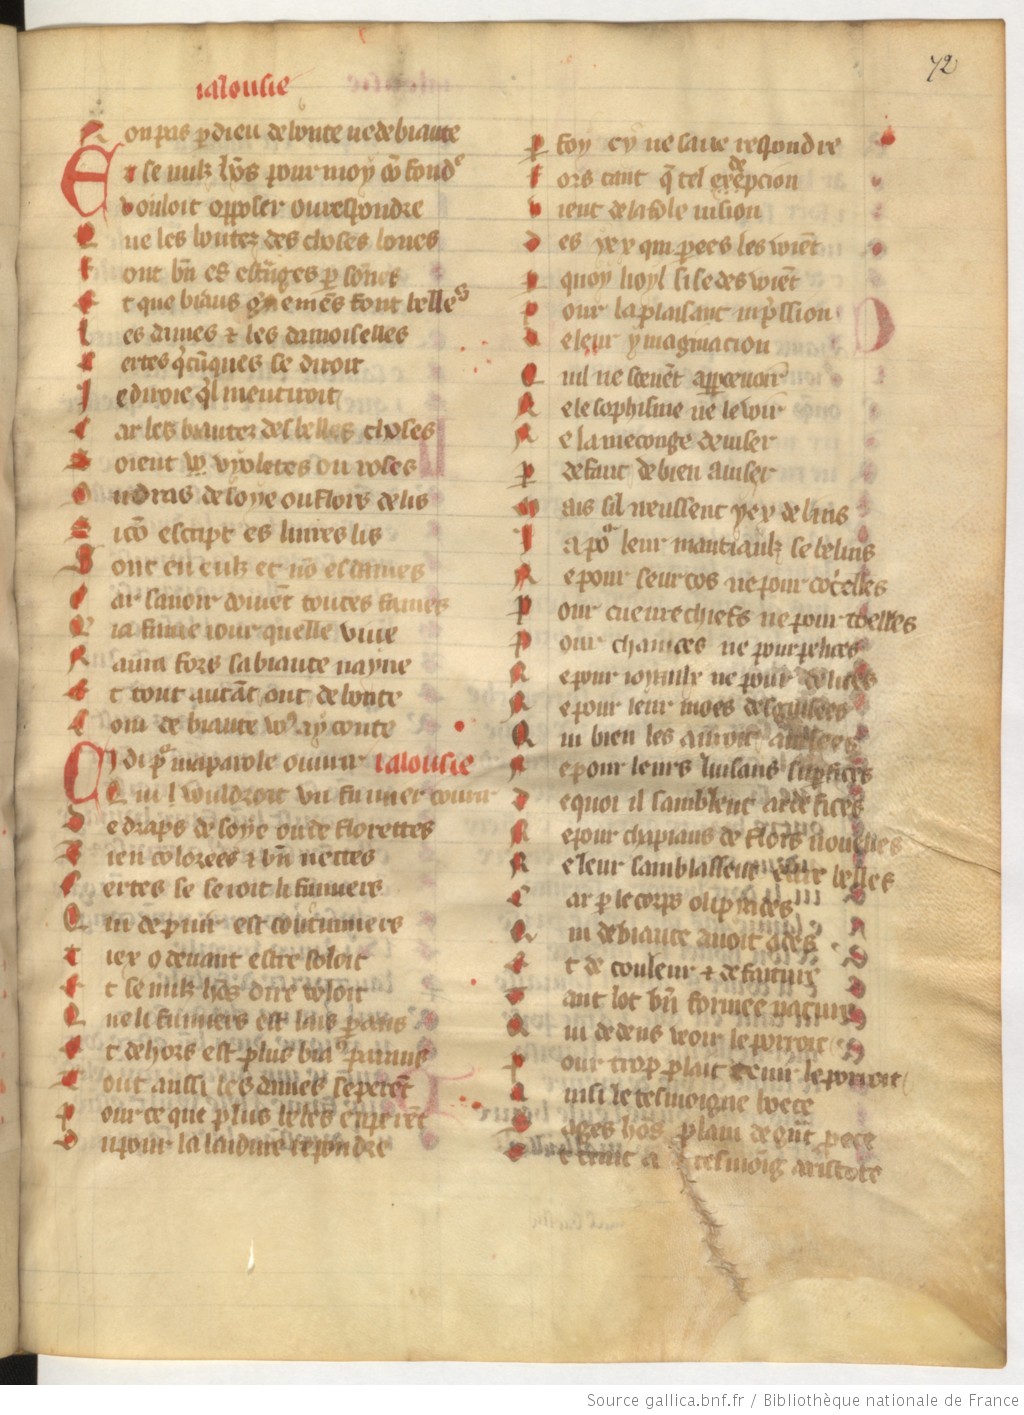 72
ialousie
Non pas p dieu de bonte ne de biaute
Et se nulz hõs pour moy cõfondre
Vouloit opposer ou respondre
Que les bontez des choses bones
sont bñ es estrãges psones
Et que biaus garnemẽs font belles
les dames et les damoiselles
certes quicũques se diroit
Je diroie ql mentiroit
Car les biautez des belles choses
Soient violetes ou roses
Ou dras de soye ou flors de lis
Sicõ escript es liures lis
Sont en eulz et nõ es dames
Car sauoir doiuẽt toutes fames
Que ia fame iour quelle viue
Naura fors sa biaute nayue
Et tout autãt out de bonte
Com de biaute vos ay conte
Si di pour ma parole ouurir ialousie
Qui vouldroit vn fumier couurir
De draps de soye ou de florettes
Bien colorees et bñ nettes
Certes se seroit li fumiers
Qui de puir est coustumiers
tiex q deuant estre soloit
Et se nulz hõs dire voloit
Que li fumiers est lais p dens
Et dehors est plus biaus parans
Tout aussi les dames se perẽt
pour ce que plus beles en perẽt
Ou pour la laidure repondre
p foy cy ne saie respondre
fors tant q̃ tel decepcion
vient de la fole uision
des yex qui pees les voiẽt
p quoy li oyl si les des voiẽt
pour la plaisant impssion
de leur ymaginacion
Quil ne sceuẽt apceuoir
Ne le sophisme ne le voir
Ne la mẽconge deuiser
p defaut de bien auiser
Mais sil neussent yex de lins
Ja pour leur mantiaulz sebelins
Ne pour seurcos ne pour cotelles
pour cueurechiefs ne pour toelles
pour chainces ne pour pelices
Ne pour ioyaulx ne pour delices
Ne pour leur moes desguisees
Qui bien les auroit auisees
Ne pour leurs luisans supfices
de quoi il samblent artefices
Ne pour chapiaus de flors nouelles
Ne leur samblassent estre belles
Car p le corps olipiades
Qui de biaute auoit ades
Et de couleur et de faiture
Tant lot bñ formee nature
Qui dedens veoir le porroit
pour trop plait tenir le porroit
Ainsi le tesmoigne boece
Sages hõs plain de gñt proece
Et trait a tesmoig aristote
Source gallica.bnf.fr / Bibliothèque nationale de France